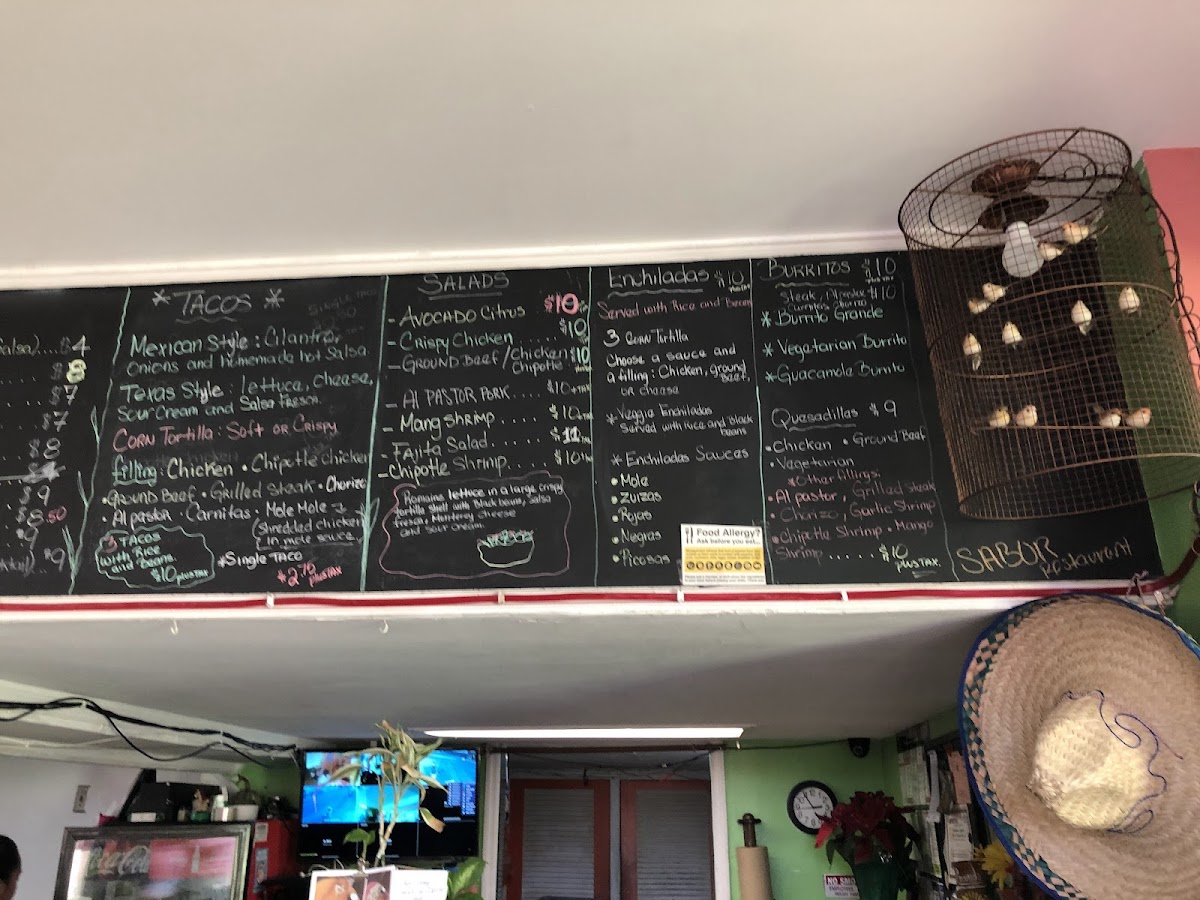 Salsa)....$4
$8
$7
$7
$8
$9
$8.50
$9
$9
* TACOS *
Mexican Style : Cilantro,
Onions and homemade hot Salsa
Texas Style : lettuce, cheese,
Sour Cream and Salsa Fresca.
CORN Tortilla : Soft or Crispy
filling : Chicken • Chipotle chicken
•Ground Beef • Grilled steak • Chorizo
• Al pastor • Carnitas • Mole Mole
(Shredded chicken
in mole sauce)
3 TACOS
with Rice
and Beans.
$10 plus TAX
*Single TACO
$2.75
plus TAX
SALADS
- AVOCADO Citrus $10
- Crispy Chicken .... $10
- GROUND Beef / Chicken $10
Chipotle
- Al PASTOR PORK. $10+TAX
- Mang shrimp.... $10
- Fajita Salad..... $11
- Chipotle Shrimp.... $10
Romaine lettuce in a large crispy
tortilla shell with Black beans, salsa
fresca, Monterey cheese
and sour cream
Enchiladas $10
Served with Rice and Beans
3 Corn Tortilla
Choose a sauce and
a filling : Chicken, ground
Beef,
or cheese
*Veggie Enchiladas
Served with rice and Black
beans
* Enchiladas Sauces
• Mole
• Zuizas
• Rojas
• Negras
• Picosas
Food Allergy?
Ask before you eat...
BURRITOS $10
Steak, $10
* Burrito Grande
* Vegetarian Burrito
*Guacamole Burrito
Quesadillas $9
•Chicken • Ground Beef
•Vegetarian
*Other fillings:
•Al pastor, Grilled steak
•Chorizo, Garlic Shrimp
•Chipotle Shrimp • Mango
Shrimp ..... $10
plus TAX.
SABUR
Restaurant
Coca-Cola
NO SMOKING